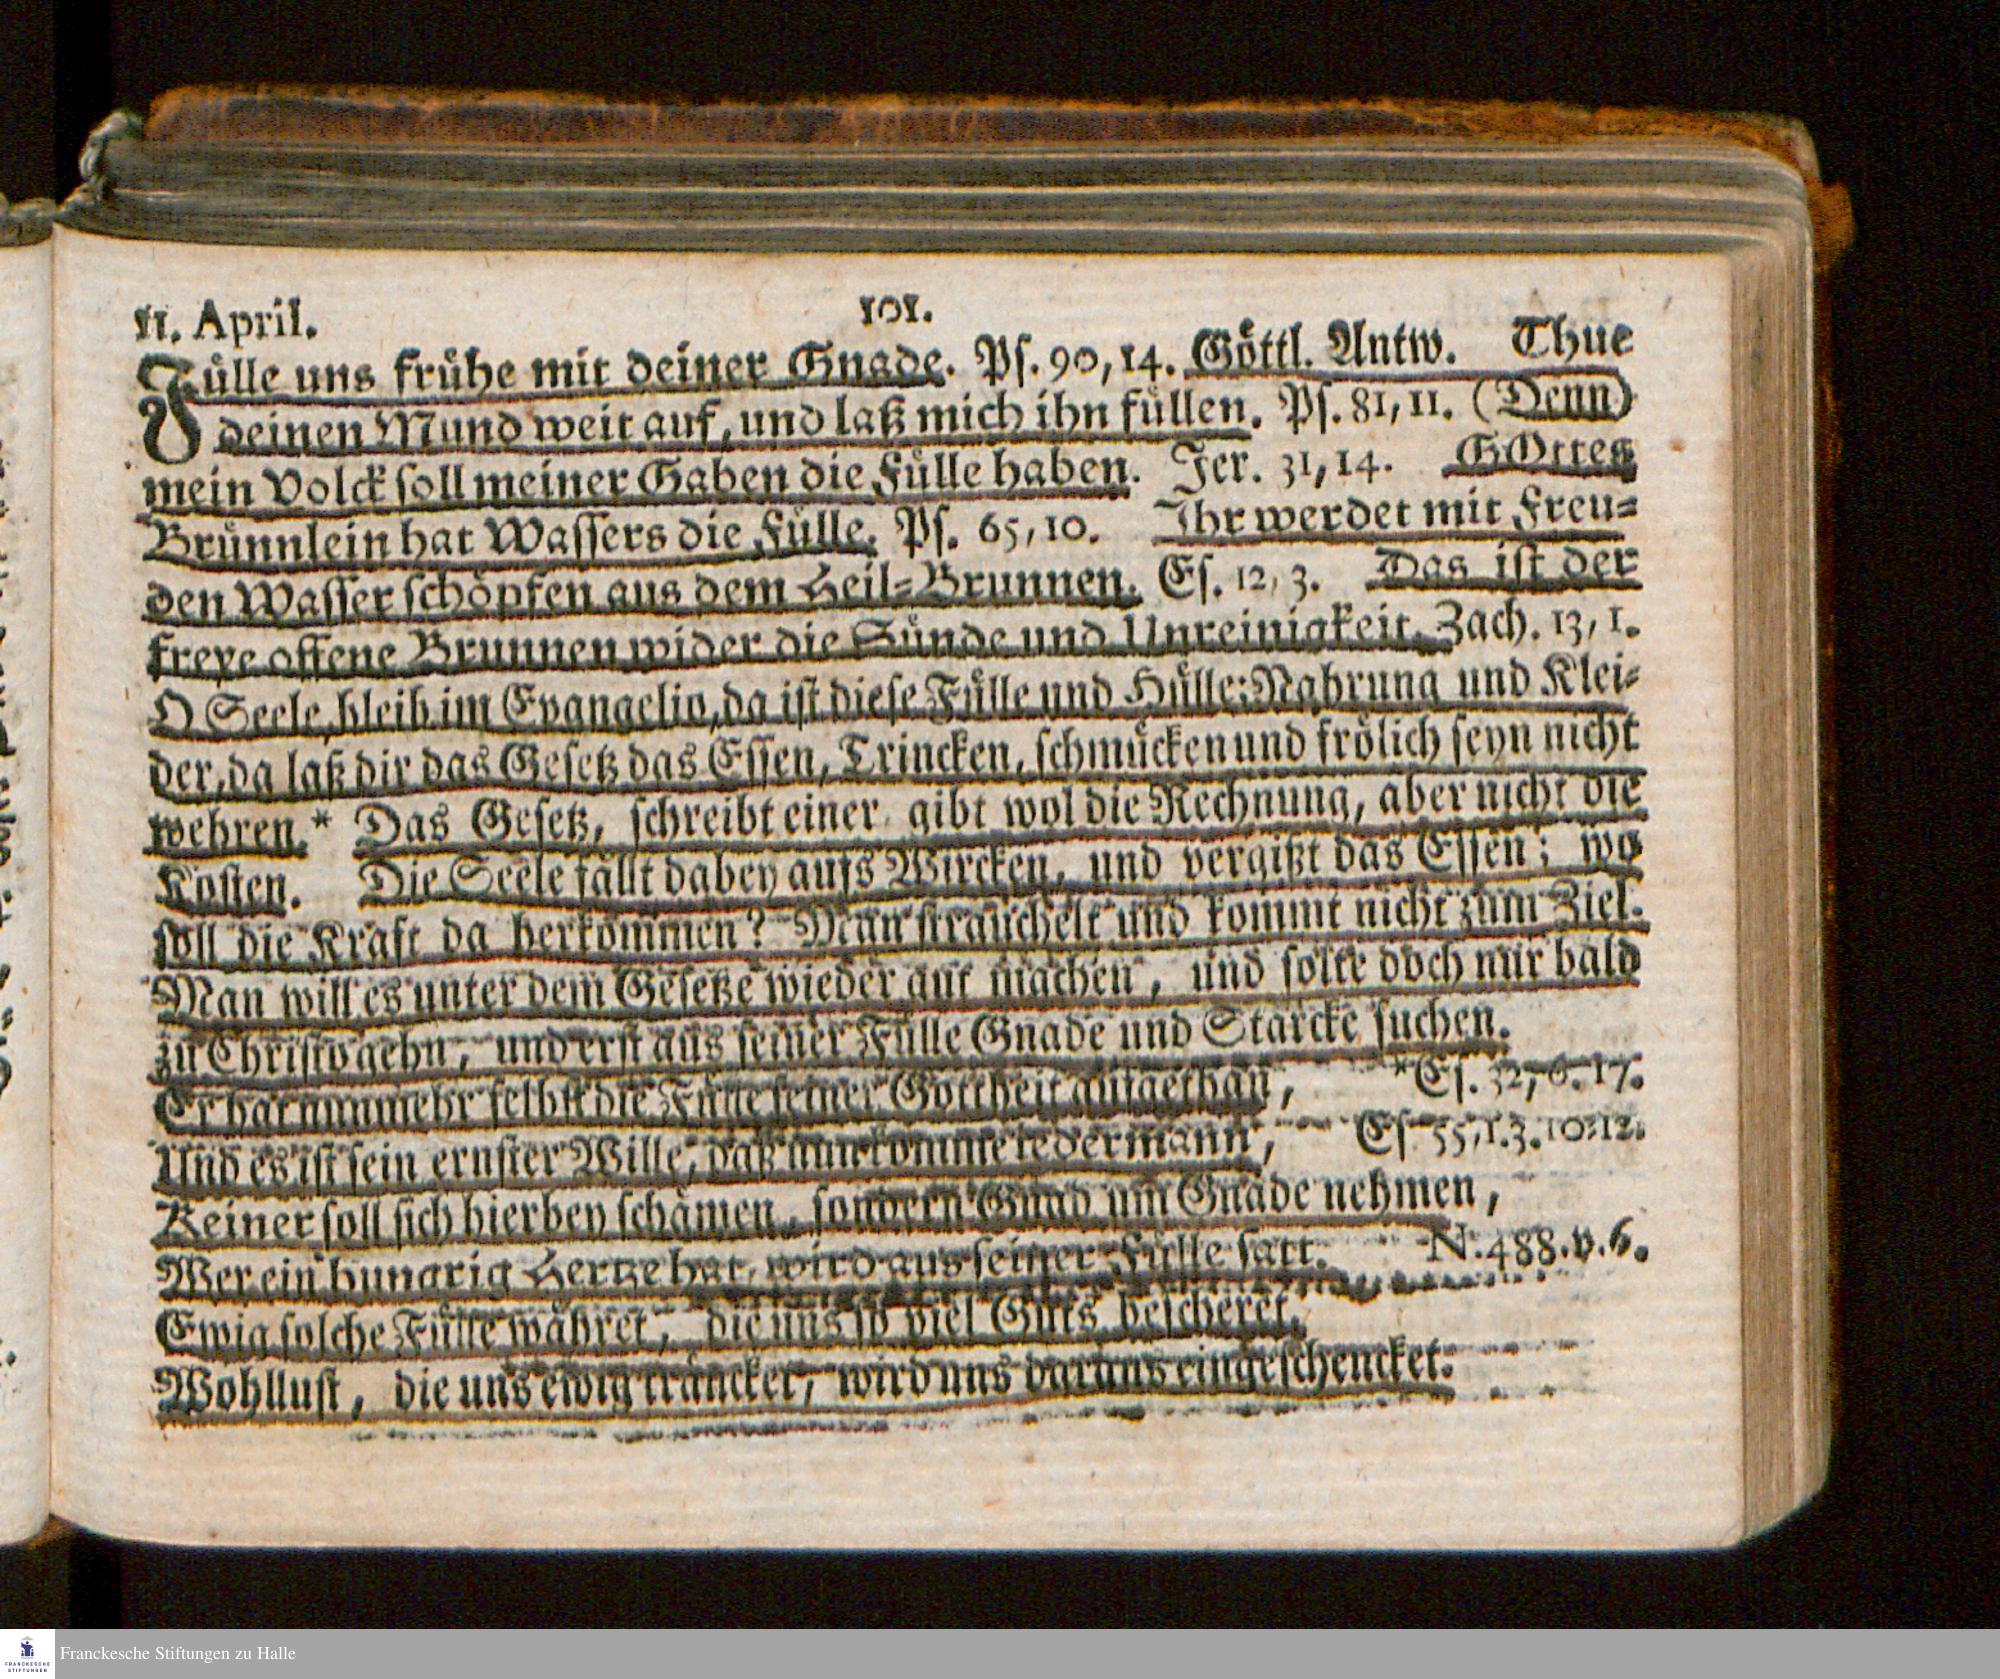 11. April.
101.
Fülle uns frühe mit deiner Gnade. Ps. 90, 14. Göttl. Antw. Thue
deinen Mund weit auf, und laß mich ihn füllen. Ps. 81, 11. (Denn)
mein Volck soll meiner Gaben die Fülle haben. Jer. 31, 14. GOttes
Brünnlein hat Wassers die Fülle. Ps. 65, 10. Ihr werdet mit Freu-
den Wasser schöpfen aus dem Heil-Brunnen. Es. 12, 3. Das ist der
freye offene Brunnen wider die Sünde und Unreinigkeit. Zach. 13, 1.
O Seele, bleib im Evangelio, da ist diese Fülle und Hülle; Nahrung und Klei-
der, da laß dir das Gesetz das Essen, Trincken, schmücken und frölich seyn nicht
wehren.* Das Gesetz, schreibt einer, gibt wol die Rechnung, aber nicht die
Kosten. Die Seele fällt dabey aufs Wircken, und vergißt das Essen; wo
soll die Kraft da herkommen? Man strauchelt und kommt nicht zum Ziel.
Man will es unter dem Gesetze wieder gut machen, und solte doch nur bald
zu Christo gehn, und erst aus seiner Fülle Gnade und Starcke suchen.
Er hat nunmehr selbst die Fülle seiner Gottheit aufgethan, *Es. 32, 6. 17.
Und es ist sein ernster Wille, daß nun komme jedermann, Es. 55, 1. 3. 10-12.
Keiner soll sich hierbey schämen, sondern Gnad um Gnade nehmen,
Wer ein hungrig Hertze hat, wird aus seiner Fülle satt. N. 488. v. 6.
Ewig solche Fülle währet, die uns so viel Guts bescheret.
Wohllust, die uns ewig träncket, wird uns daraus eingeschencket.
FRANCKESCHE
STIFTUNGEN
Franckesche Stiftungen zu Halle